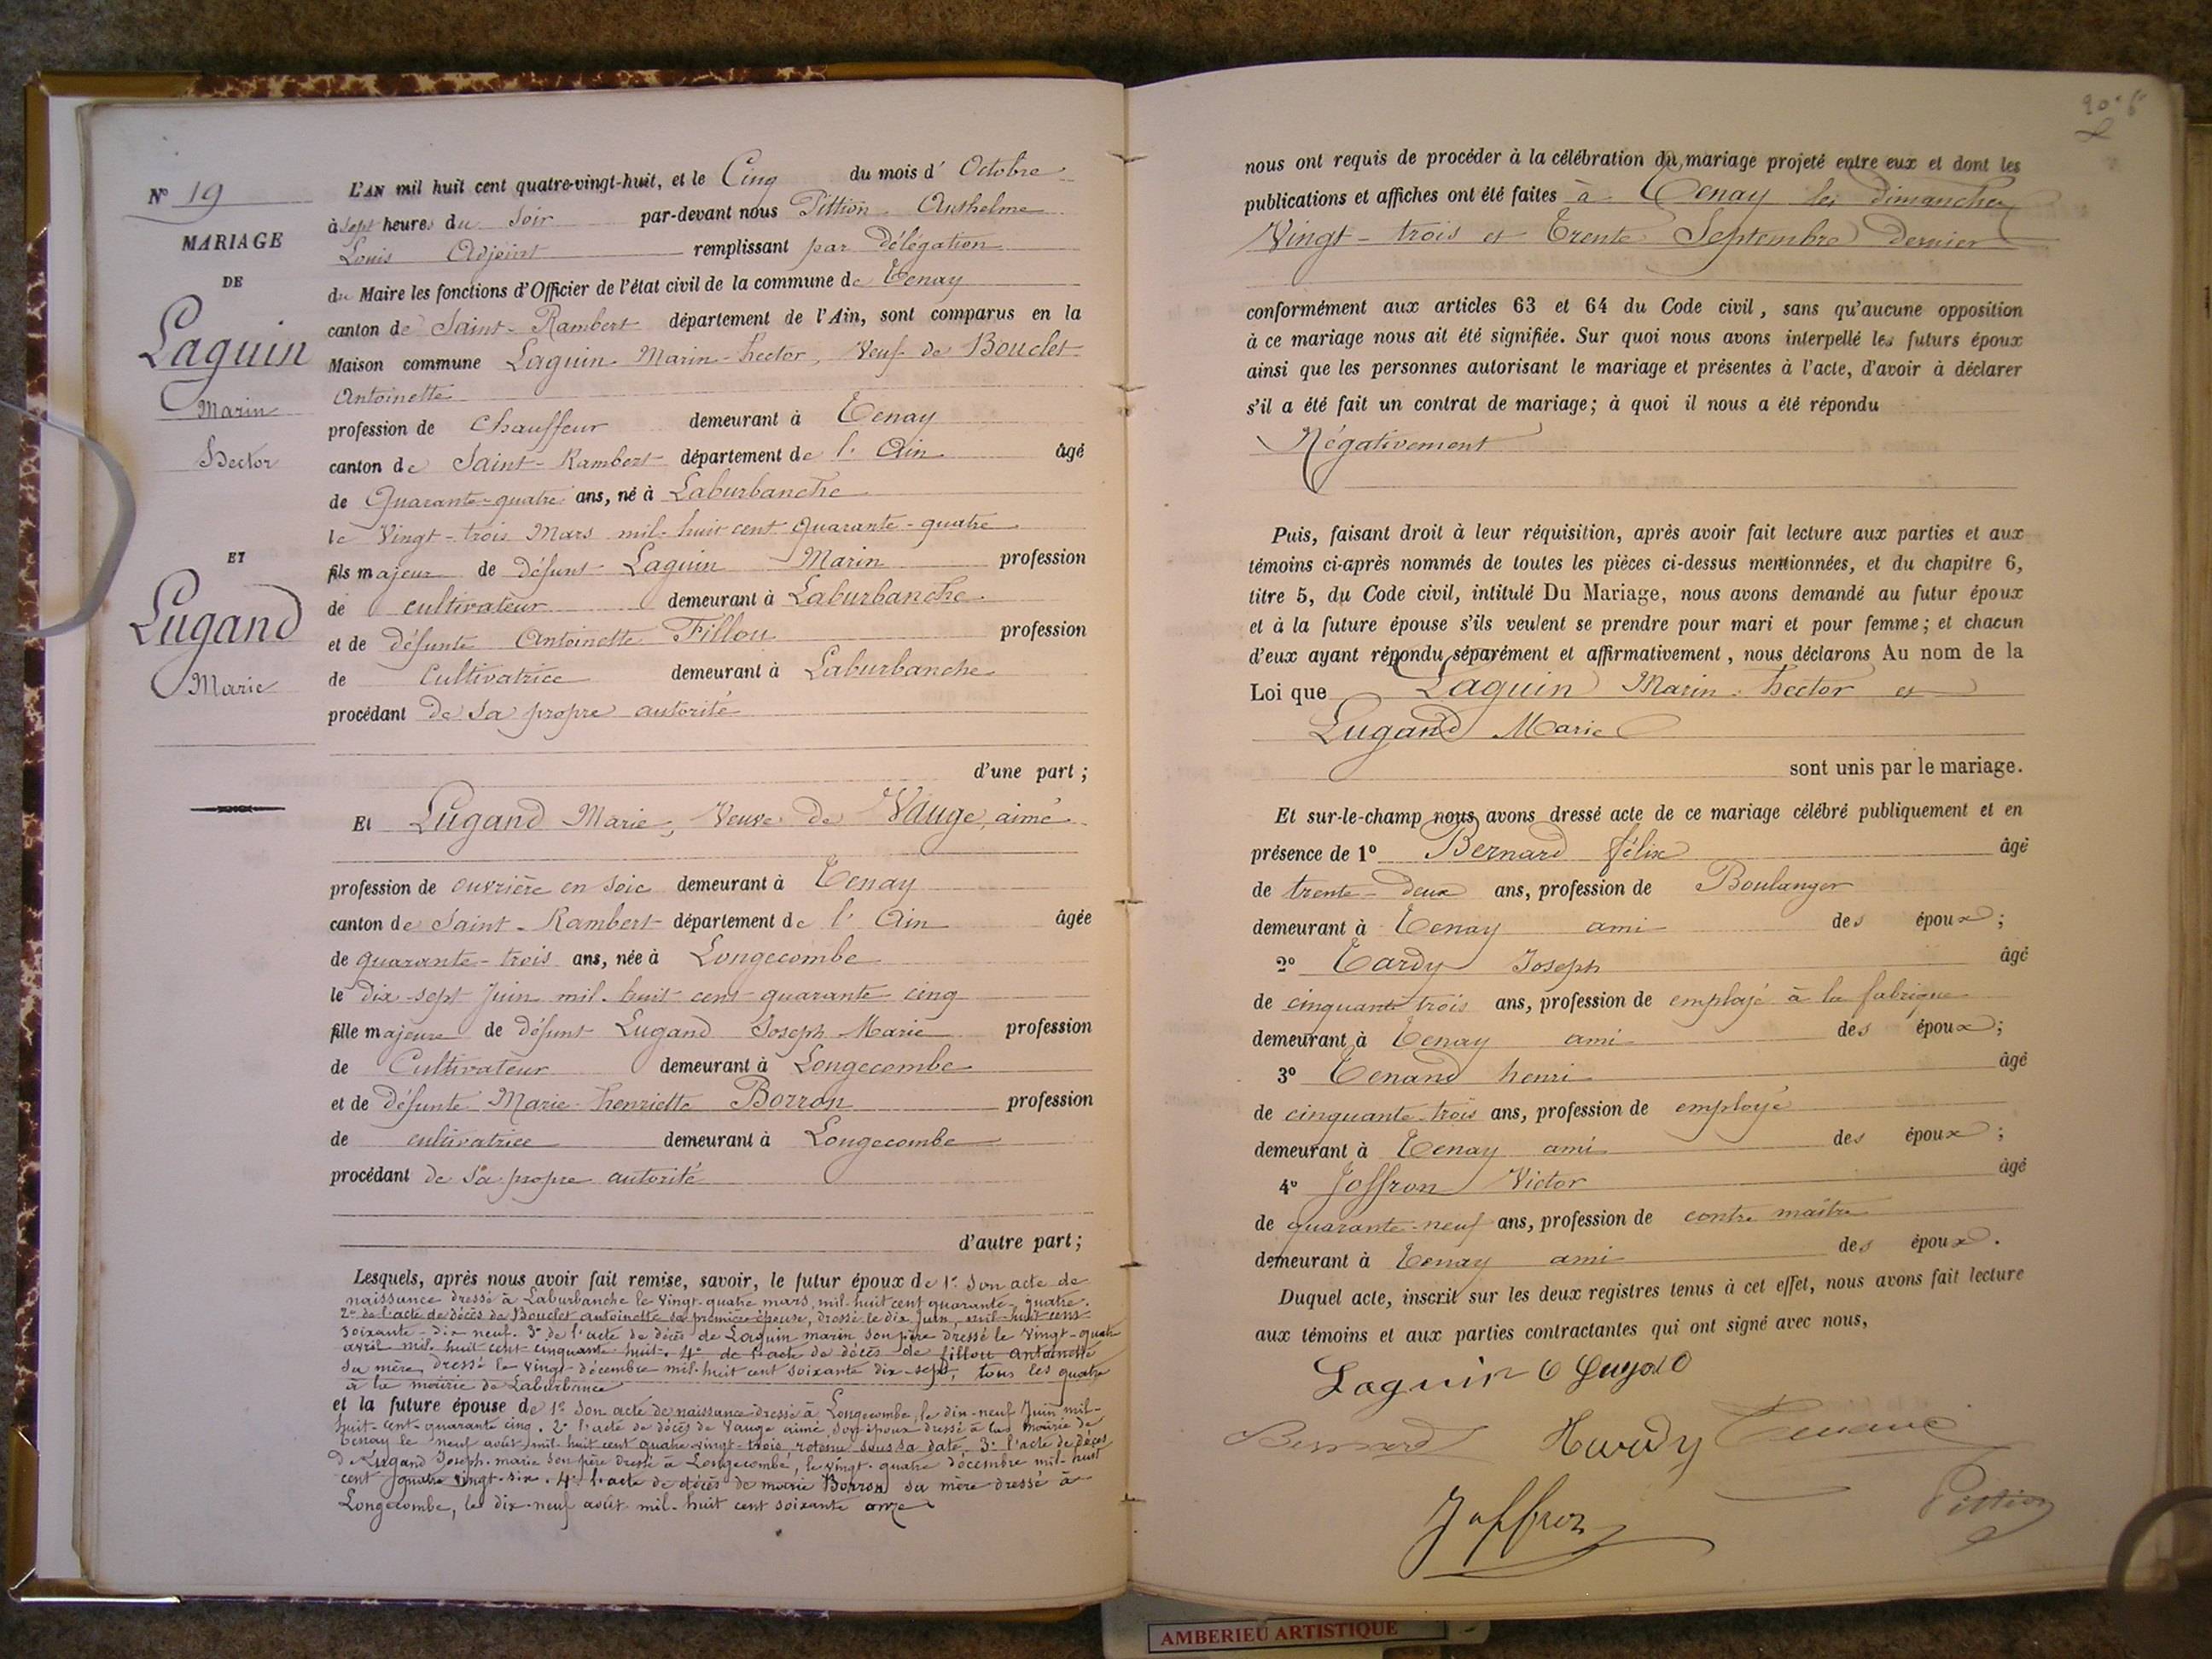 N° 19
MARIAGE
DE
Laguin
Marin
Hector
ET
Lugand
Marie
L'AN mil huit cent quatre-vingt-huit, et le Cinq du mois d' Octobre
à sept heures du Soir par-devant nous Pittion Anthelme
Louis Adjoint remplissant par délégation
du Maire les fonctions d'Officier de l'état civil de la commune de Tenay
canton de Saint-Rambert département de l'Ain, sont comparus en la
Maison commune Laguin Marin-hector, Veuf de Bouclet
Antoinette
profession de Chauffeur demeurant à Tenay
canton de Saint-Rambert département de l' Ain âgé
de Quarante-quatre ans, né à Laburbanche
le Vingt-trois Mars mil-huit cent quarante-quatre
fils majeur de défunt Laguin Marin profession
de cultivateur demeurant à Laburbanche
et de défunte Antoinette Fillou profession
de Cultivatrice demeurant à Laburbanche
procédant de sa propre autorité
d'une part ;
Et Lugand Marie, Veuve de Vauge, aimé
profession de ouvrière en soie demeurant à Tenay
canton de Saint-Rambert département de l' Ain âgée
de quarante-trois ans, née à Longecombe
le dix-sept Juin mil-huit cent quarante cinq
fille majeure de défunt Lugand Joseph-Marie profession
de Cultivateur demeurant à Longecombe
et de défunte Marie-henriette Borron profession
de cultivatrice demeurant à Longecombe
procédant de sa propre autorité
d'autre part ;
Lesquels, après nous avoir fait remise, savoir, le futur époux de 1° Son acte de
naissance dressé à Laburbanche le Vingt-quatre mars, mil-huit cent quarante-quatre.
2° de l'acte de décès de Bouclet antoinette sa première épouse, dressé le dix Juin, mil-huit-cent
soixante-dix neuf. 3° de l'acte de décès de Laguin marin son père dressé le Vingt-quatre
avril mil huit cent cinquante huit. 4° de l'acte de décès de fillou antoinette
sa mère dressé le vingt décembre mil-huit cent soixante dix-sept, tous les quatre
à la mairie de Laburbance
et la future épouse de 1° Son acte de naissance dressé à Longecombe, le dix-neuf Juin mil-
huit-cent-quarante cinq. 2° l'acte de décès de Vauge aimé son époux dressé à la mairie de
Tenay le neuf août mil-huit cent quatre vingt-trois, retenu sous sa date, 3° l'acte de décès
de Lugand Joseph-marie son père dressé à Longecombe, le vingt-quatre décembre mil-huit
cent quatre vingt-six. 4° l'acte de décès de marie Borron sa mère dressé à
Longecombe, le dix-neuf août mil-huit cent soixante onze
nous ont requis de procéder à la célébration du mariage projeté entre eux et dont les
publications et affiches ont été faites à Tenay les dimanches
Vingt-trois et Trente Septembre dernier
conformément aux articles 63 et 64 du Code civil, sans qu'aucune opposition
à ce mariage nous ait été signifiée. Sur quoi nous avons interpellé les futurs époux
ainsi que les personnes autorisant le mariage et présentes à l'acte, d'avoir à déclarer
s'il a été fait un contrat de mariage; à quoi il nous a été répondu
Négativement
Puis, faisant droit à leur réquisition, après avoir fait lecture aux parties et aux
témoins ci-après nommés de toutes les pièces ci-dessus mentionnées, et du chapitre 6,
titre 5, du Code civil, intitulé Du Mariage, nous avons demandé au futur époux
et à la future épouse s'ils veulent se prendre pour mari et pour femme ; et chacun
d'eux ayant répondu séparément et affirmativement, nous déclarons Au nom de la
Loi que Laguin Marin-hector et
Lugand Marie
sont unis par le mariage.
Et sur-le-champ nous avons dressé acte de ce mariage célébré publiquement et en
présence de 1° Bernard félix âgé
de trente-deux ans, profession de Boulanger
demeurant à Tenay ami des époux ;
2° Tardy Joseph âgé
de cinquante trois ans, profession de employé à la fabrique
demeurant à Tenay ami des époux ;
3° Tenand henri âgé
de cinquante-trois ans, profession de employé
demeurant à Tenay ami des époux ;
4° Joffron Victor âgé
de quarante-neuf ans, profession de contre maître
demeurant à Tenay ami des époux.
Duquel acte, inscrit sur les deux registres tenus à cet effet, nous avons fait lecture
aux témoins et aux parties contractantes qui ont signé avec nous,
Laguin
Bernard Tardy Tenand
Joffron Pittion
AMBERIEU ARTISTIQUE